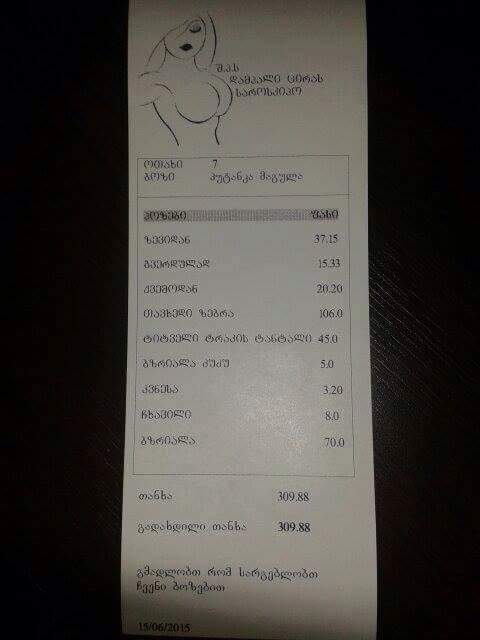 შ.პ.ს
დამპალი ცირას
საროსკიპო
ოთახი 7
ბოზი პუტანკა მაგულა
პოზები ფასი
ზევიდან 37.15
გვერდულად 15.33
ქვემოდან 20.20
თავხედი ზებრა 106.0
ტიტველი ტრაკის ტანტალი 45.0
ბზრიალა კუკუ 5.0
კვნესა 3.20
ჩხავილი 8.0
ბზრიალა 70.0
თანხა 309.88
გადახდილი თანხა 309.88
გმადლობთ რომ სარგებლობთ
ჩვენი ბოზებით
15/06/2015